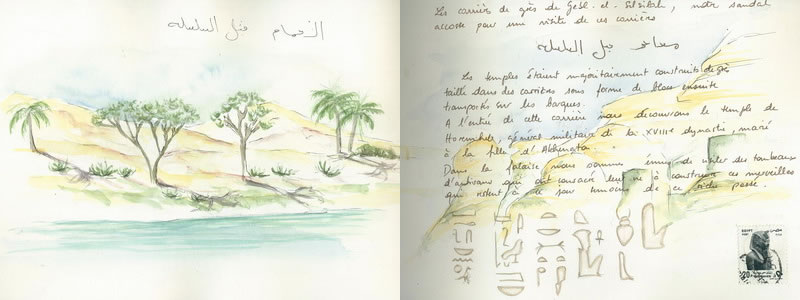 جبل السلسله
Les carrière de grès de Gebl-el-Silsilah, notre sandal
accoste pour une visite de ces carrières
جبل السلسله
Les temples étaient majoritairement construits de grès
taillé dans des carrières sous forme de blocs ensuite
transportés sur les barques.
A l'entrée de cette carrière nous découvrons le temple de
Horemheb, général militaire de la XVIIIe dynastie, marié
à la fille d'
Dans la falaise nous sommes de visiter des tombeaux
d'artisans qui ont consacré leur vie à construire ces merveilles
qui restent à ce jour témoins de ce riche passé.
EGYPT